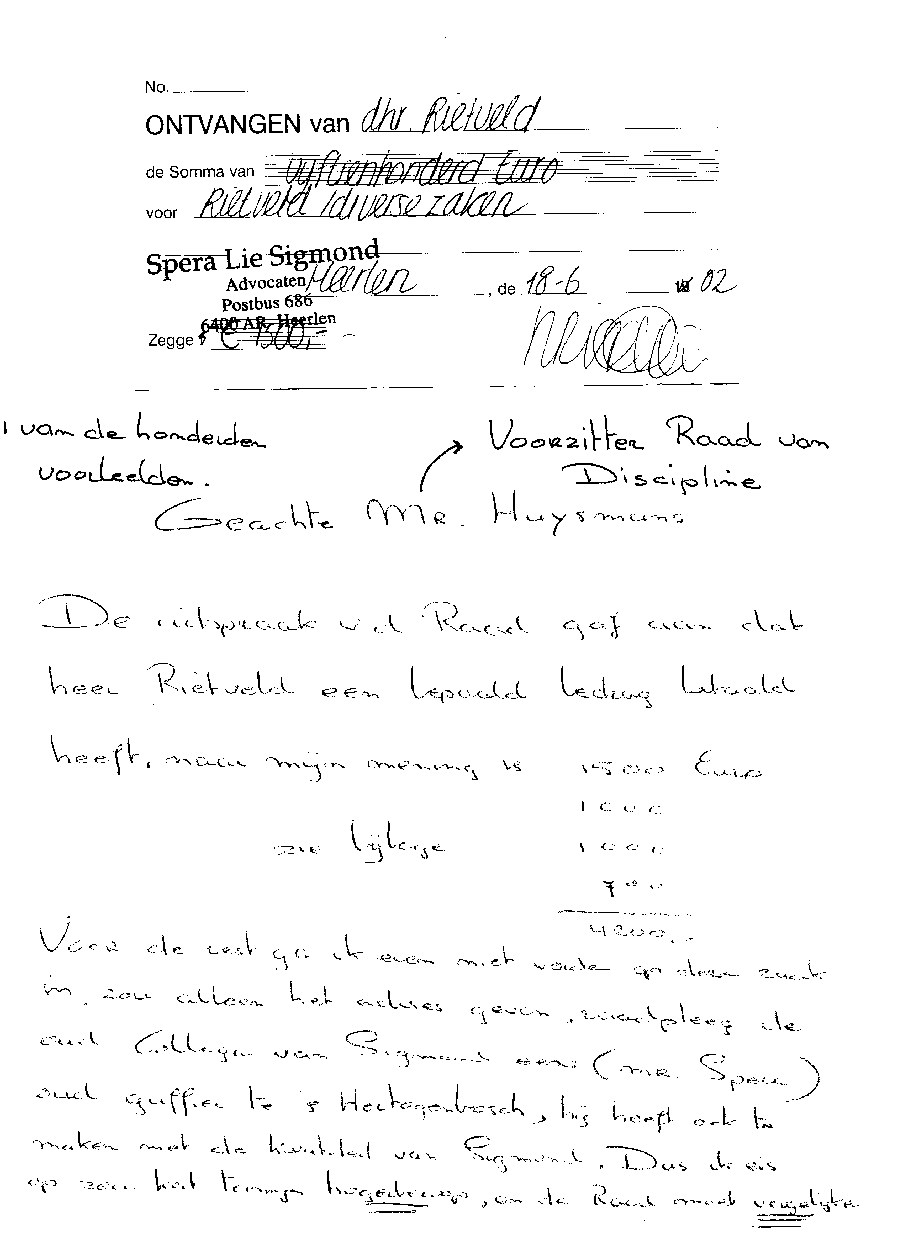 No.
ONTVANGEN van dhr. Rietveld
de Somma van vijftienhonderd Euro
voor Rietveld / diverse zaken
Spera Lie Sigmond
Advocaten Heerlen , de 18-6 02
Postbus 686
6400 AR Heerlen
Zegge € 1500,-
1 van de honderden
voorbeelden.
Voorzitter Raad van
Discipline
Geachte Mr. Huysmans
De uitspraak v.d Raad gaf aan dat
heer Rietveld een bepaald bedrag betaald
heeft, naar mijn mening is 1500 Euro
1000
zie bijlage 1000
700
4200,-
Voor de rest ga ik even niet verder op deze zaak
in, zou alleen het advies geven, raadpleeg de
oud Collega van Sigmond eens (mr. Spera)
oud griffier te 's Hertogenbosch, hij heeft ook te
maken met de kwaliteit van Sigmond. Dus ik eis
op zeer kort termijn hogerberoep, en de Raad moet